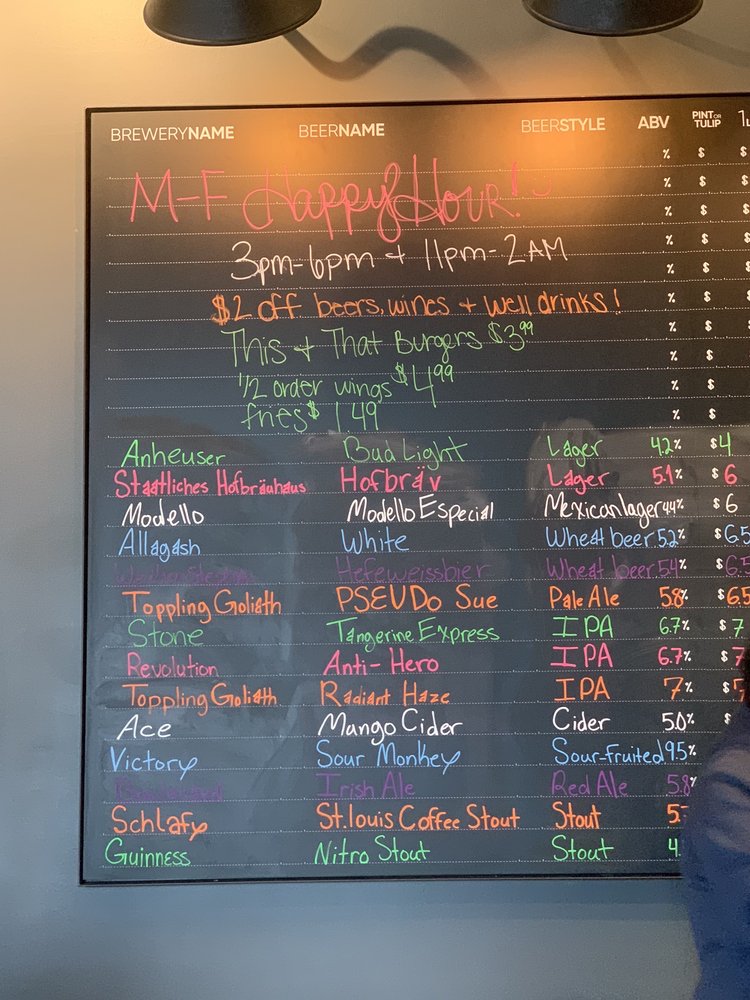 BREWERYNAME BEERNAME BEERSTYLE ABV PINT OR TULIP
M-F Happy Hour!
3pm-6pm + 11pm-2AM
$2 off beers, wines + well drinks!
This + That Burgers $3.99
1/2 order wings $4.99
fries $1.49
Anheuser Bud Light Lager 4.2% $4
Staatliches Hofbräuhaus Hofbräv Lager 5.1% $6
Modello Modello Especial Mexican lager 4.4% $6
Allagash White Wheat beer 5.2% $6.5
Hefeweissbier Wheat beer 5.4% $6.5
Toppling Goliath PSEUDo Sue Pale Ale 5.8% $6.5
Stone Tangerine Express IPA 6.7% $7
Revolution Anti-Hero IPA 6.7% $7
Toppling Goliath Radiant Haze IPA 7% $7
Ace Mango Cider Cider 5.0% $
Victory Sour Monkey Sour-Fruited 9.5%
Irish Ale Red Ale 5.8%
Schlafy St. louis Coffee Stout Stout 5.
Guinness Nitro Stout Stout 4.